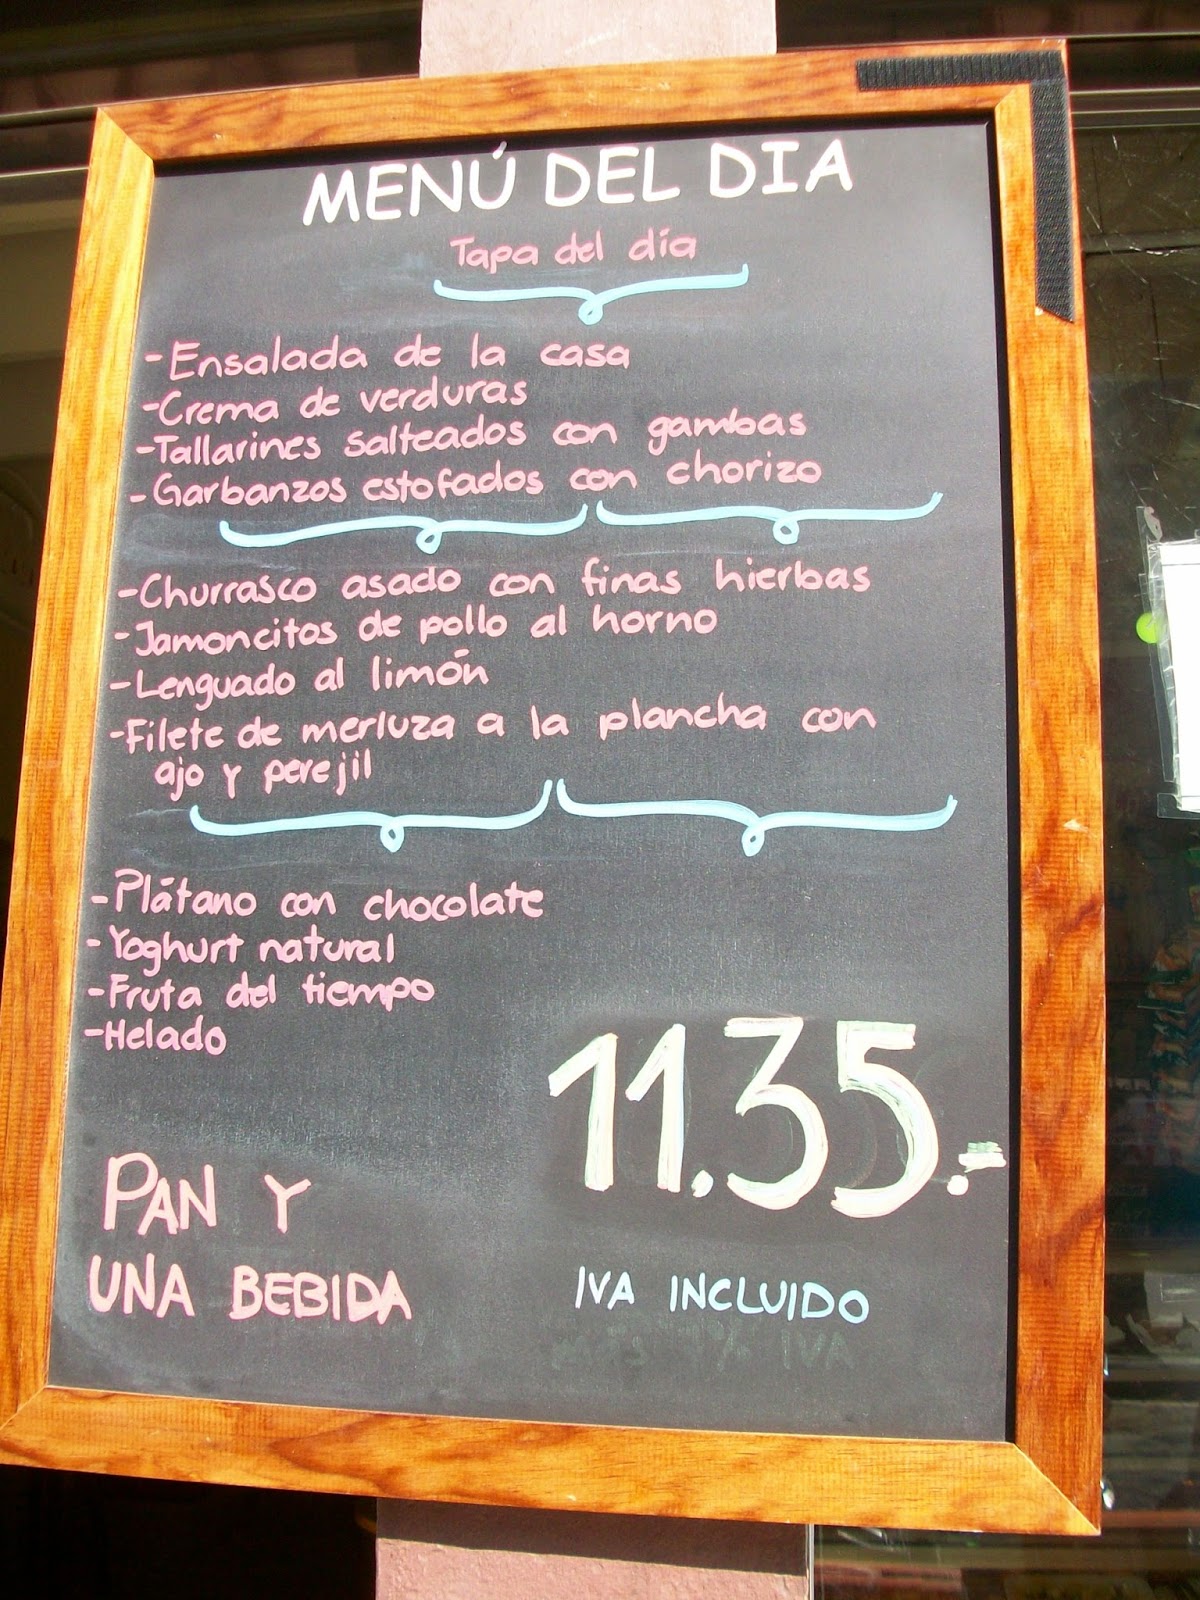 MENÚ DEL DIA
Tapa del día
-Ensalada de la casa
-Crema de verduras
-Tallarines salteados con gambas
-Garbanzos estofados con chorizo
-Churrasco asado con finas hierbas
-Jamoncitos de pollo al horno
-Lenguado al limón
-Filete de merluza a la plancha con
ajo y perejil
-Plátano con chocolate
-Yoghurt natural
-Fruta del tiempo
-Helado
11.35.-
PAN Y
UNA BEBIDA
IVA INCLUIDO